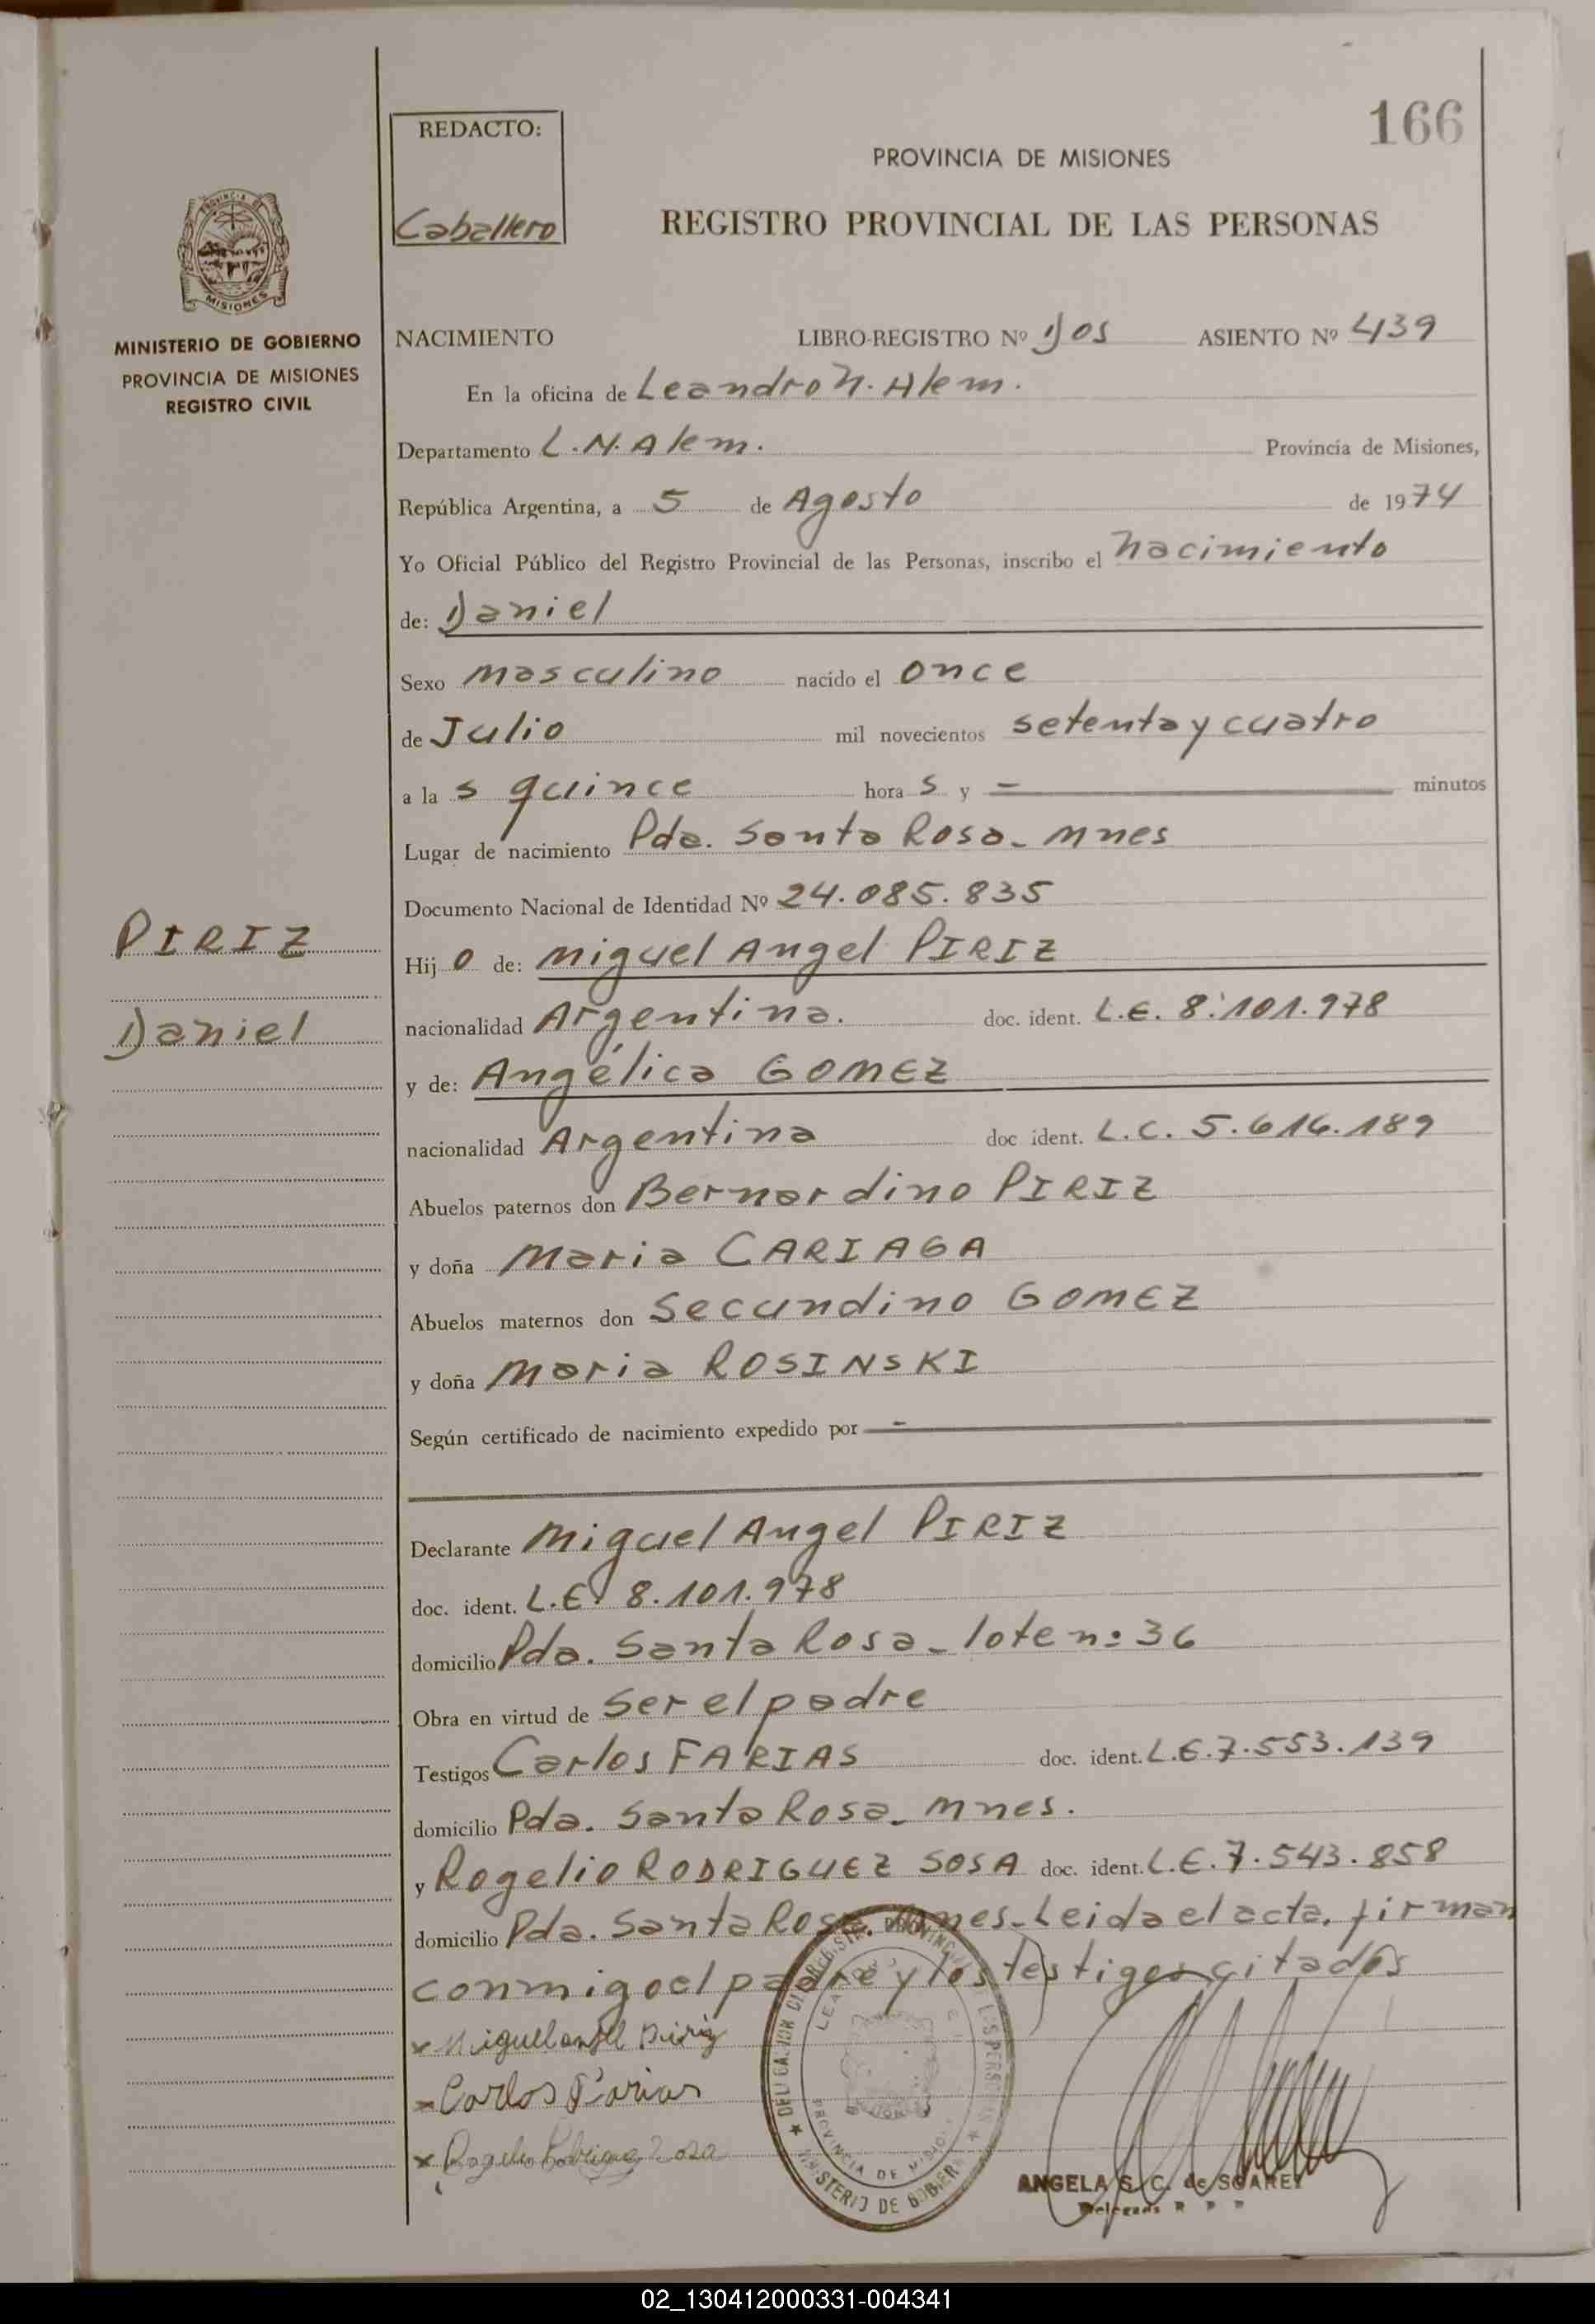 166
REDACTO:
Caballero
PROVINCIA DE MISIONES
REGISTRO PROVINCIAL DE LAS PERSONAS
PROVINCIA DE
MISIONES
MINISTERIO DE GOBIERNO
PROVINCIA DE MISIONES
REGISTRO CIVIL
NACIMIENTO LIBRO-REGISTRO Nº Dos ASIENTO Nº 439
En la oficina de Leandro N. Alem.
Departamento L.N. Alem. Provincia de Misiones,
República Argentina, a 5 de Agosto de 1974
Yo Oficial Público del Registro Provincial de las Personas, inscribo el nacimiento
de: Daniel
Sexo masculino nacido el once
de Julio mil novecientos setenta y cuatro
a la s quince hora s y - minutos
Lugar de nacimiento Pda. Santa Rosa - Mnes
Documento Nacional de Identidad Nº 24.085.835
PIRIZ
Daniel
Hij o de: Miguel Angel PIRIZ
nacionalidad Argentina. doc. ident. L.E. 8.101.978
y de: Angélica GOMEZ
nacionalidad Argentina doc ident. L.C. 5.616.189
Abuelos paternos don Bernardino PIRIZ
y doña Maria CARIAGA
Abuelos maternos don Secundino GOMEZ
y doña Maria ROSINSKI
Según certificado de nacimiento expedido por -
Declarante Miguel Angel PIRIZ
doc. ident. L.E. 8.101.978
domicilio Pda. Santa Rosa - lote nº 36
Obra en virtud de Ser el padre
Testigos Carlos FARIAS doc. ident. L.E. 7.553.139
domicilio Pda. Santa Rosa - Mnes.
y Rogelio RODRIGUEZ SOSA doc. ident. L.E. 7.543.858
domicilio Pda. Santa Rosa - Mnes - Leida el acta, firman
conmigo el padre y los testigos citados
x Miguel angel Piriz
- Carlos Farias
x Rogelio Sosa
PROVINCIA DE
MINISTERIO DE GOBIER
ANGELA S. C. de SOAREZ
Delegada R P P
02_130412000331-004341